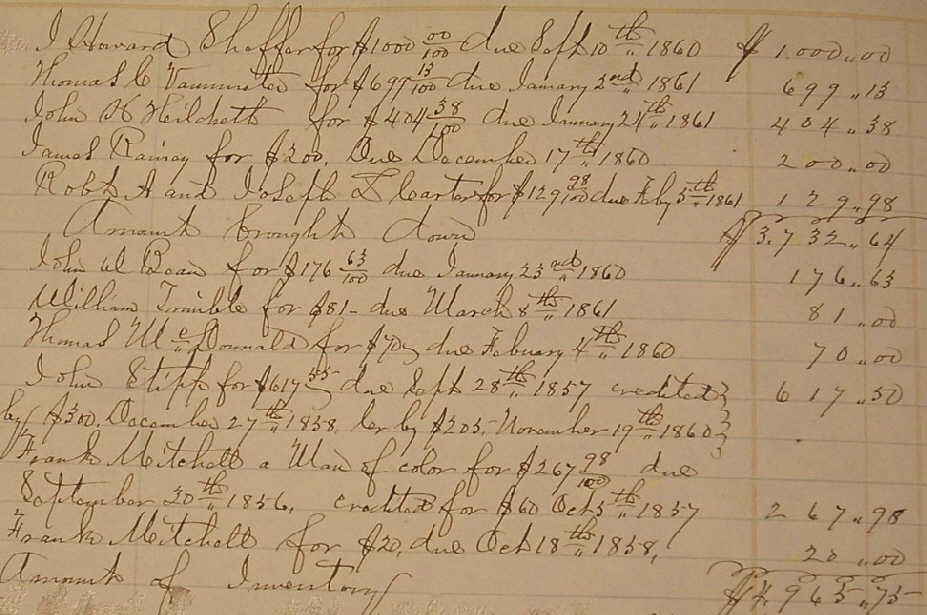 J Howard Shaffer for $1000 00/100 due Sept 10th 1860 $1.000.00
Thomas C Vanmeter for $699 13/100 due January 2nd 1861 699.13
John K Hildreth for $404 38/100 due January 24th 1861 404.38
James Ramey for $200. Due December 17th 1860 200.00
Robt A and Joseph L Carter for $129 98/100 due Feby 5th 1861 129.98
Amount brought down $3.732.64
John W Bean for $176 63/100 due January 23rd 1860 176.63
William Trimble for $81- due March 8th 1861 81.00
Thomas McDonnald for $70, due Febuary 4th 1860 70.00
John Stipp for $617 55 due Sept 28th 1857 credited 617.50
by $300. December 27th 1858. Cr by $205. November 19th 1860
Frank Mitchell a Man of color for $267 98/100 due
September 20th 1856. credited for $60 Oct 5th 1857 267.98
Frank Mitchell for $20. due Oct 18th 1858, 20.00
Amount of Inventory $4965.75